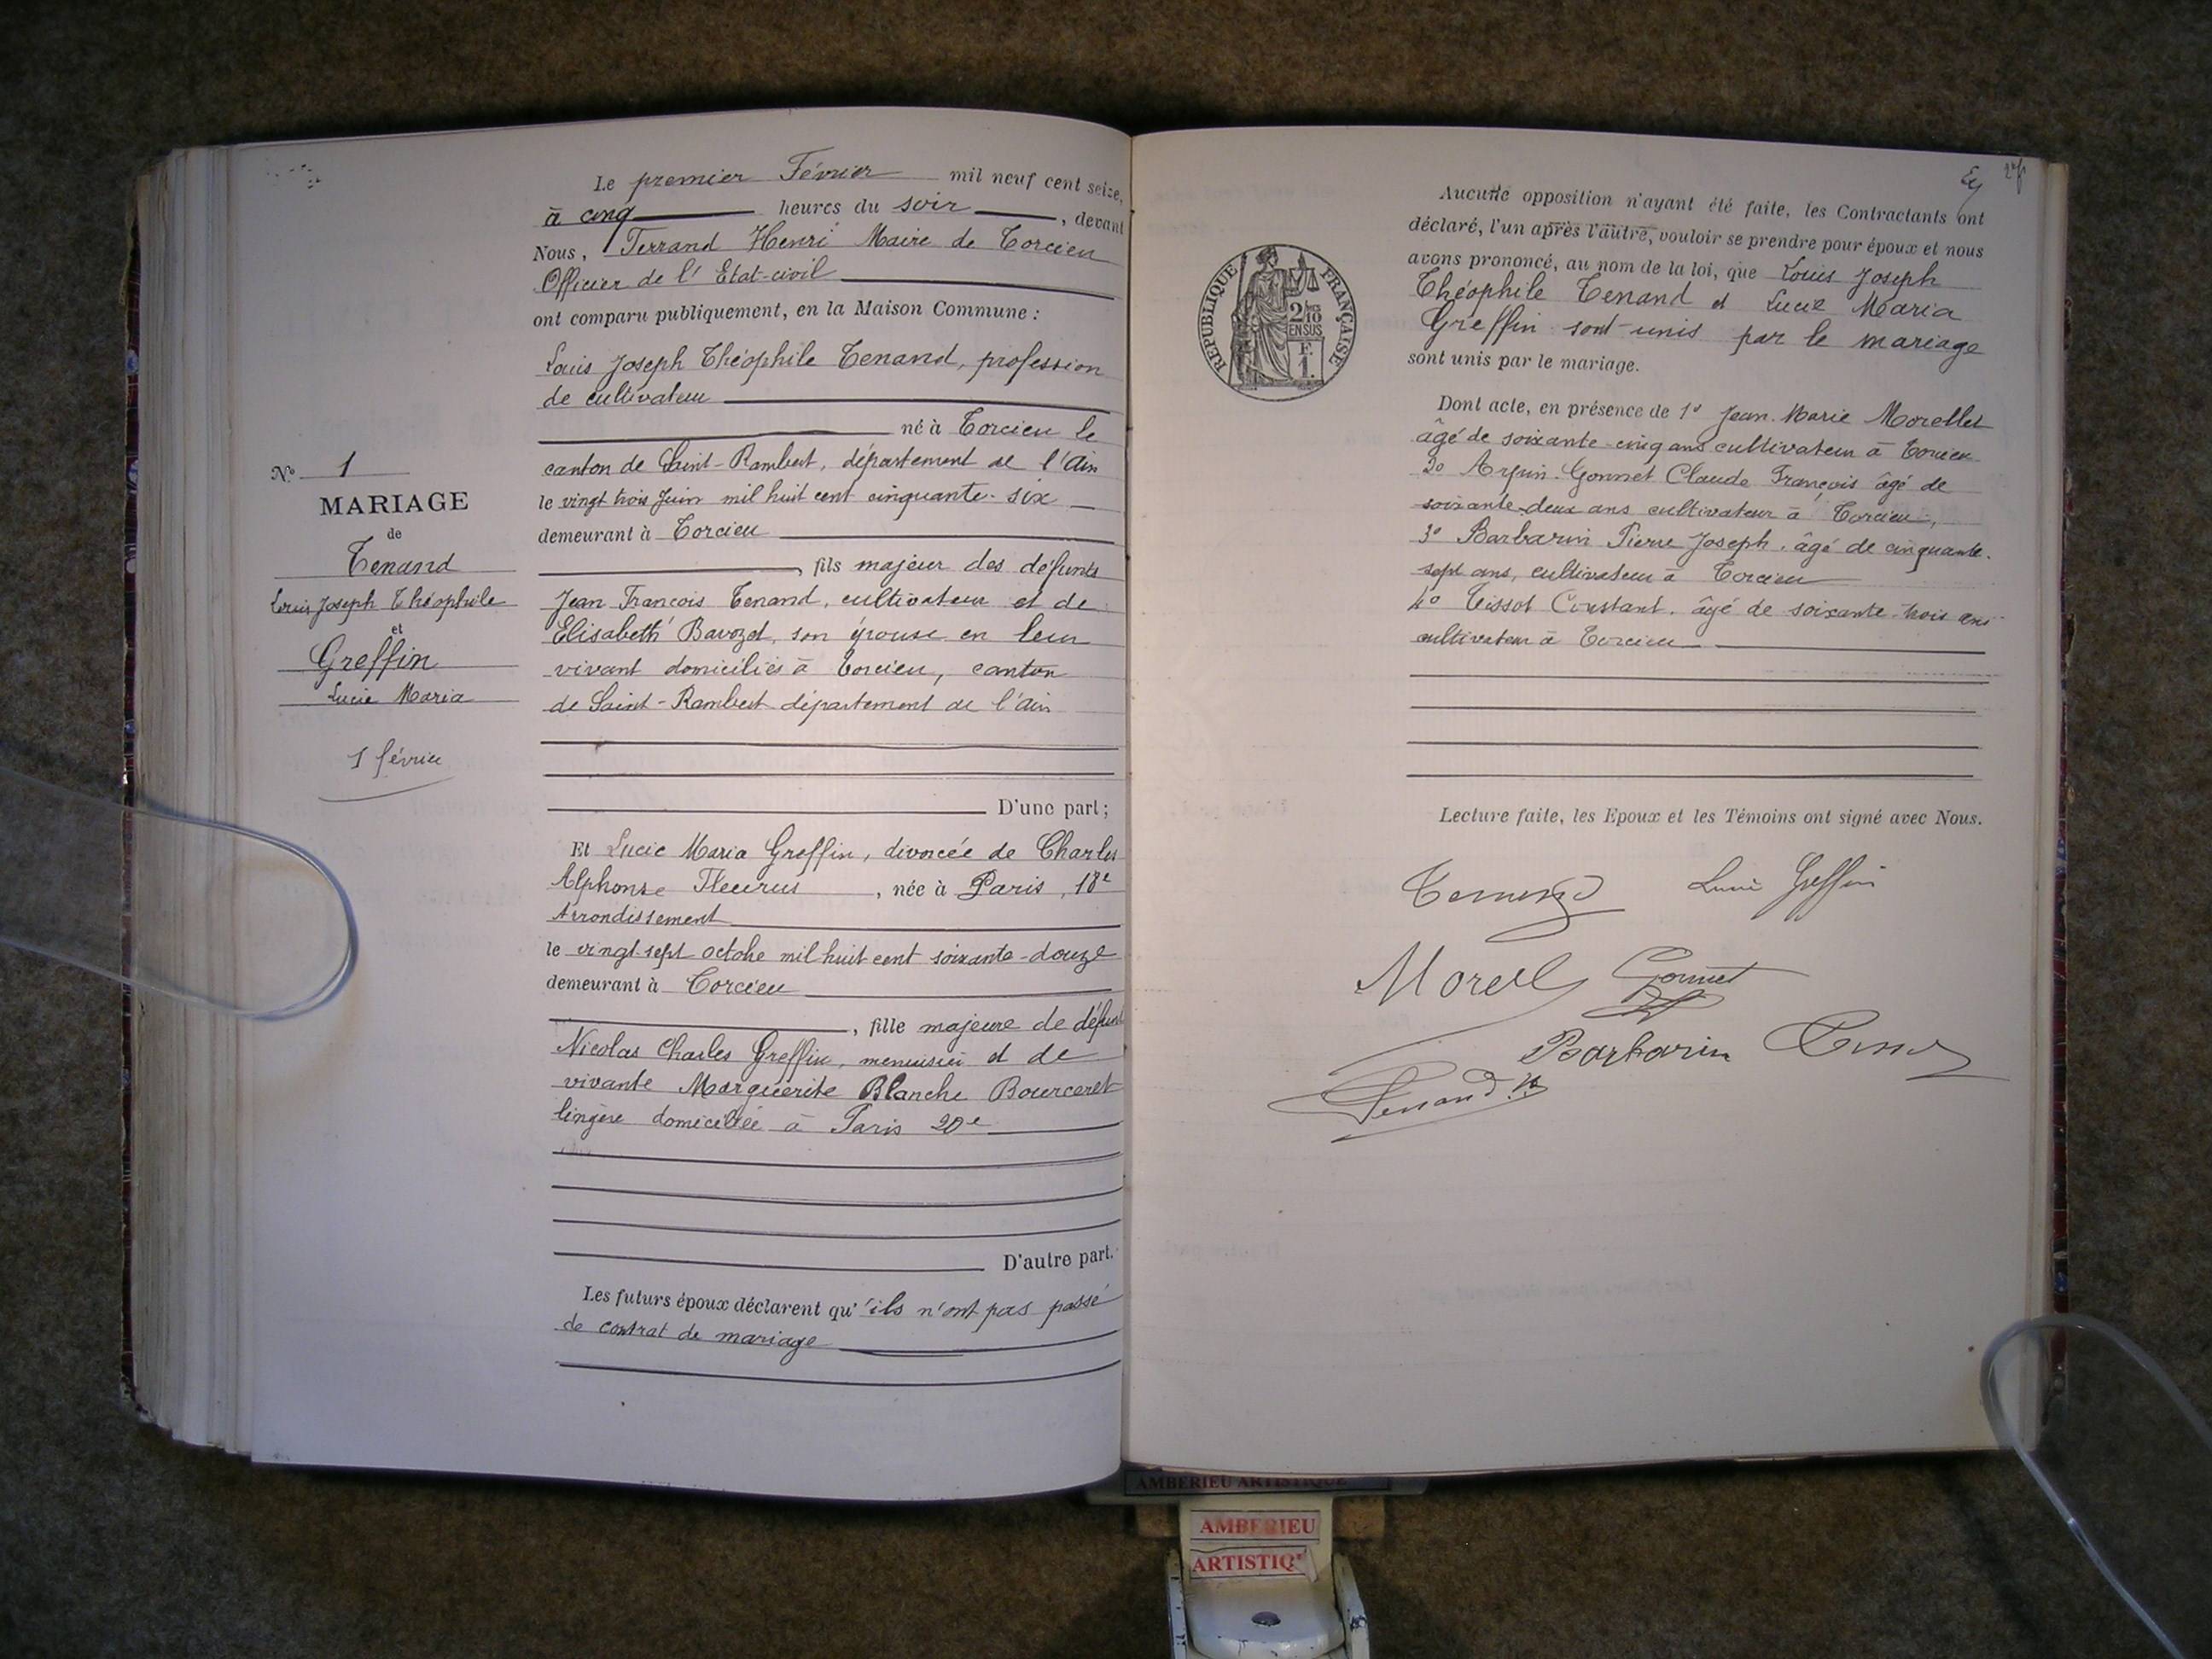 N° 1
MARIAGE
de
Tenand
Louis Joseph Théophile
et
Greffin
Lucie Maria
1 février
Le premier Février mil neuf cent seize,
à cinq heures du soir, devant
Nous, Ferrand Henri Maire de Torcieu
Officier de l'Etat-civil
ont comparu publiquement, en la Maison Commune :
Louis Joseph Théophile Tenand, profession
de cultivateur
né à Torcieu le
canton de Saint-Rambert, département de l'Ain
le vingt trois Juin mil huit cent cinquante-six
demeurant à Torcieu
, fils majeur des défunts
Jean François Tenand, cultivateur et de
Elisabeth Bavozet, son épouse en leur
vivant domiciliés à Torcieu, canton
de Saint-Rambert département de l'Ain
D'une part ;
Et Lucie Maria Greffin, divorcée de Charles
Alphonse Fleurus, née à Paris, 18e
Arrondissement
le vingt-sept octobre mil huit cent soixante-douze
demeurant à Torcieu
, fille majeure de défunt
Nicolas Charles Greffin, menuisier et de
vivante Marguerite Blanche Bourceret
lingère domiciliée à Paris 20e
D'autre part.
Les futurs époux déclarent qu'ils n'ont pas passé
de contrat de mariage
Aucune opposition n'ayant été faite, les Contractants ont
déclaré, l'un après l'autre, vouloir se prendre pour époux et nous
avons prononcé, au nom de la loi, que Louis Joseph
Théophile Tenand et Lucie Maria
Greffin sont unis par le mariage
sont unis par le mariage.
Dont acte, en présence de 1° Jean-Marie Morellet
âgé de soixante-cinq ans cultivateur à Torcieu
2° Arpin-Gonnet Claude François âgé de
soixante-deux ans cultivateur à Torcieu,
3° Barbarin Pierre Joseph, âgé de cinquante-
sept ans, cultivateur à Torcieu
4° Tissot Constant, âgé de soixante-trois ans
cultivateur à Torcieu
Lecture faite, les Epoux et les Témoins ont signé avec Nous.
Tenand Lucie Greffin
Gonnet
Barbarin
Ferrand H
REPUBLIQUE FRANÇAISE
2/10
EN SUS
F.
1.
AMBERIEU ARTISTIQUE
AMBERIEU
ARTISTIQ